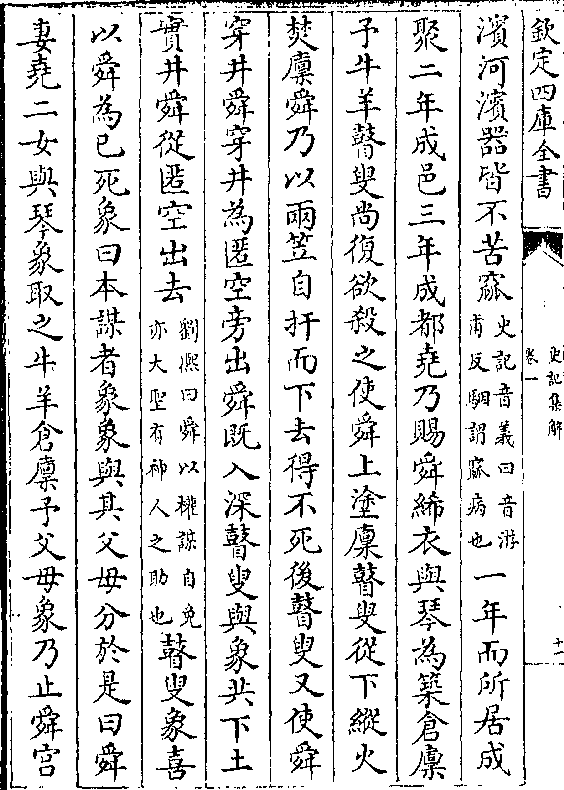 欽定四庫全書
史記集解
卷一
十一
濱河濱器皆不苦窳史記音義曰音游甫反駰謂窳病也一年而所居成
聚二年成邑三年成都堯乃賜舜絺衣與琴為築倉廩
予牛羊瞽叟尚復欲殺之使舜上塗廩瞽叟從下縱火
焚廩舜乃以兩笠自扞而下去得不死後瞽叟又使舜
穿井舜穿井為匿空旁出舜既入深瞽叟與象共下土
實井舜從匿空出去劉熙曰舜以權謀自免亦大聖有神人之助也瞽叟象喜
以舜為已死象曰本謀者象象與其父母分於是曰舜
妻堯二女與琴象取之牛羊倉廩予父母象乃止舜宮